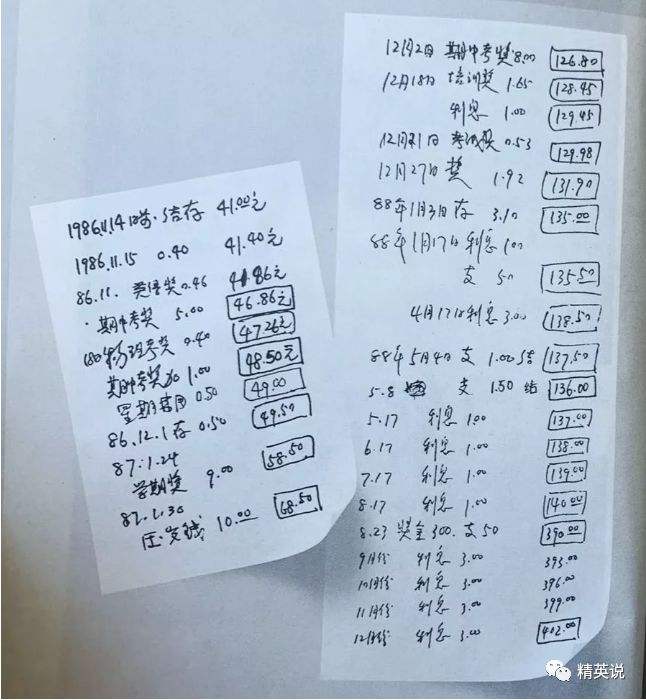 1986.11.14日前.结存 41.00元
1986.11.15 0.40 41.40元
86.11. 英语奖 0.46 41.86元
. 期中考奖 5.00 46.86元
物理考奖 0.40 47.26元
期中考奖加 1.00 48.50元
星期 0.50 49.00
86.12.1存 0.50 49.50
87.1.24
学期奖 9.00 58.50
87.1.30
压岁钱 10.00 68.50
12月2日 期中考奖 8.00 126.80
12月18日 培训奖 1.65 128.45
利息 1.00 129.45
12月21日 考试奖 0.53 129.98
12月27日 奖 1.92 131.90
88年1月3日存 3.10 135.00
88年1月17日利息 1.00
支 50 135.50
4月17日利息 3.00 138.50
88年5月4日 支 1.00 结 137.50
5.8 支 1.50 结 136.00
5.17 利息 1.00 137.00
6.17 利息 1.00 138.00
7.17 利息 1.00 139.00
8.17 利息 1.00 140.00
8.23 奖金300. 支50 390.00
9月份 利息 3.00 393.00
10月份 利息 3.00 396.00
11月份 利息 3.00 399.00
12月份 利息 3.00 402.00
精英说